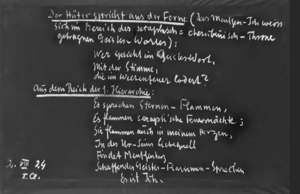 Der Hüter spricht aus der Ferne: (Das Menschen-Ich weiss
sich im Bereich des seraphisch = cherubinisch - Throne
getragnen Geistes - Wortes):
Wer spricht im Geisteswort,
Mit der Stimme,
die im Weltenfeuer lodert?
Aus dem Reich der 1. Hierarchie:
Es sprechen Sternen - Flammen,
Es flammen seraph'sche Feuermächte;
Sie flammen auch in meinem Herzen,
In des Ur-Seins Liebequell
Findet Menschenherz
Schaffendes Geister - Flammen - Sprechen
Es ist Ich.
2. VIII 24